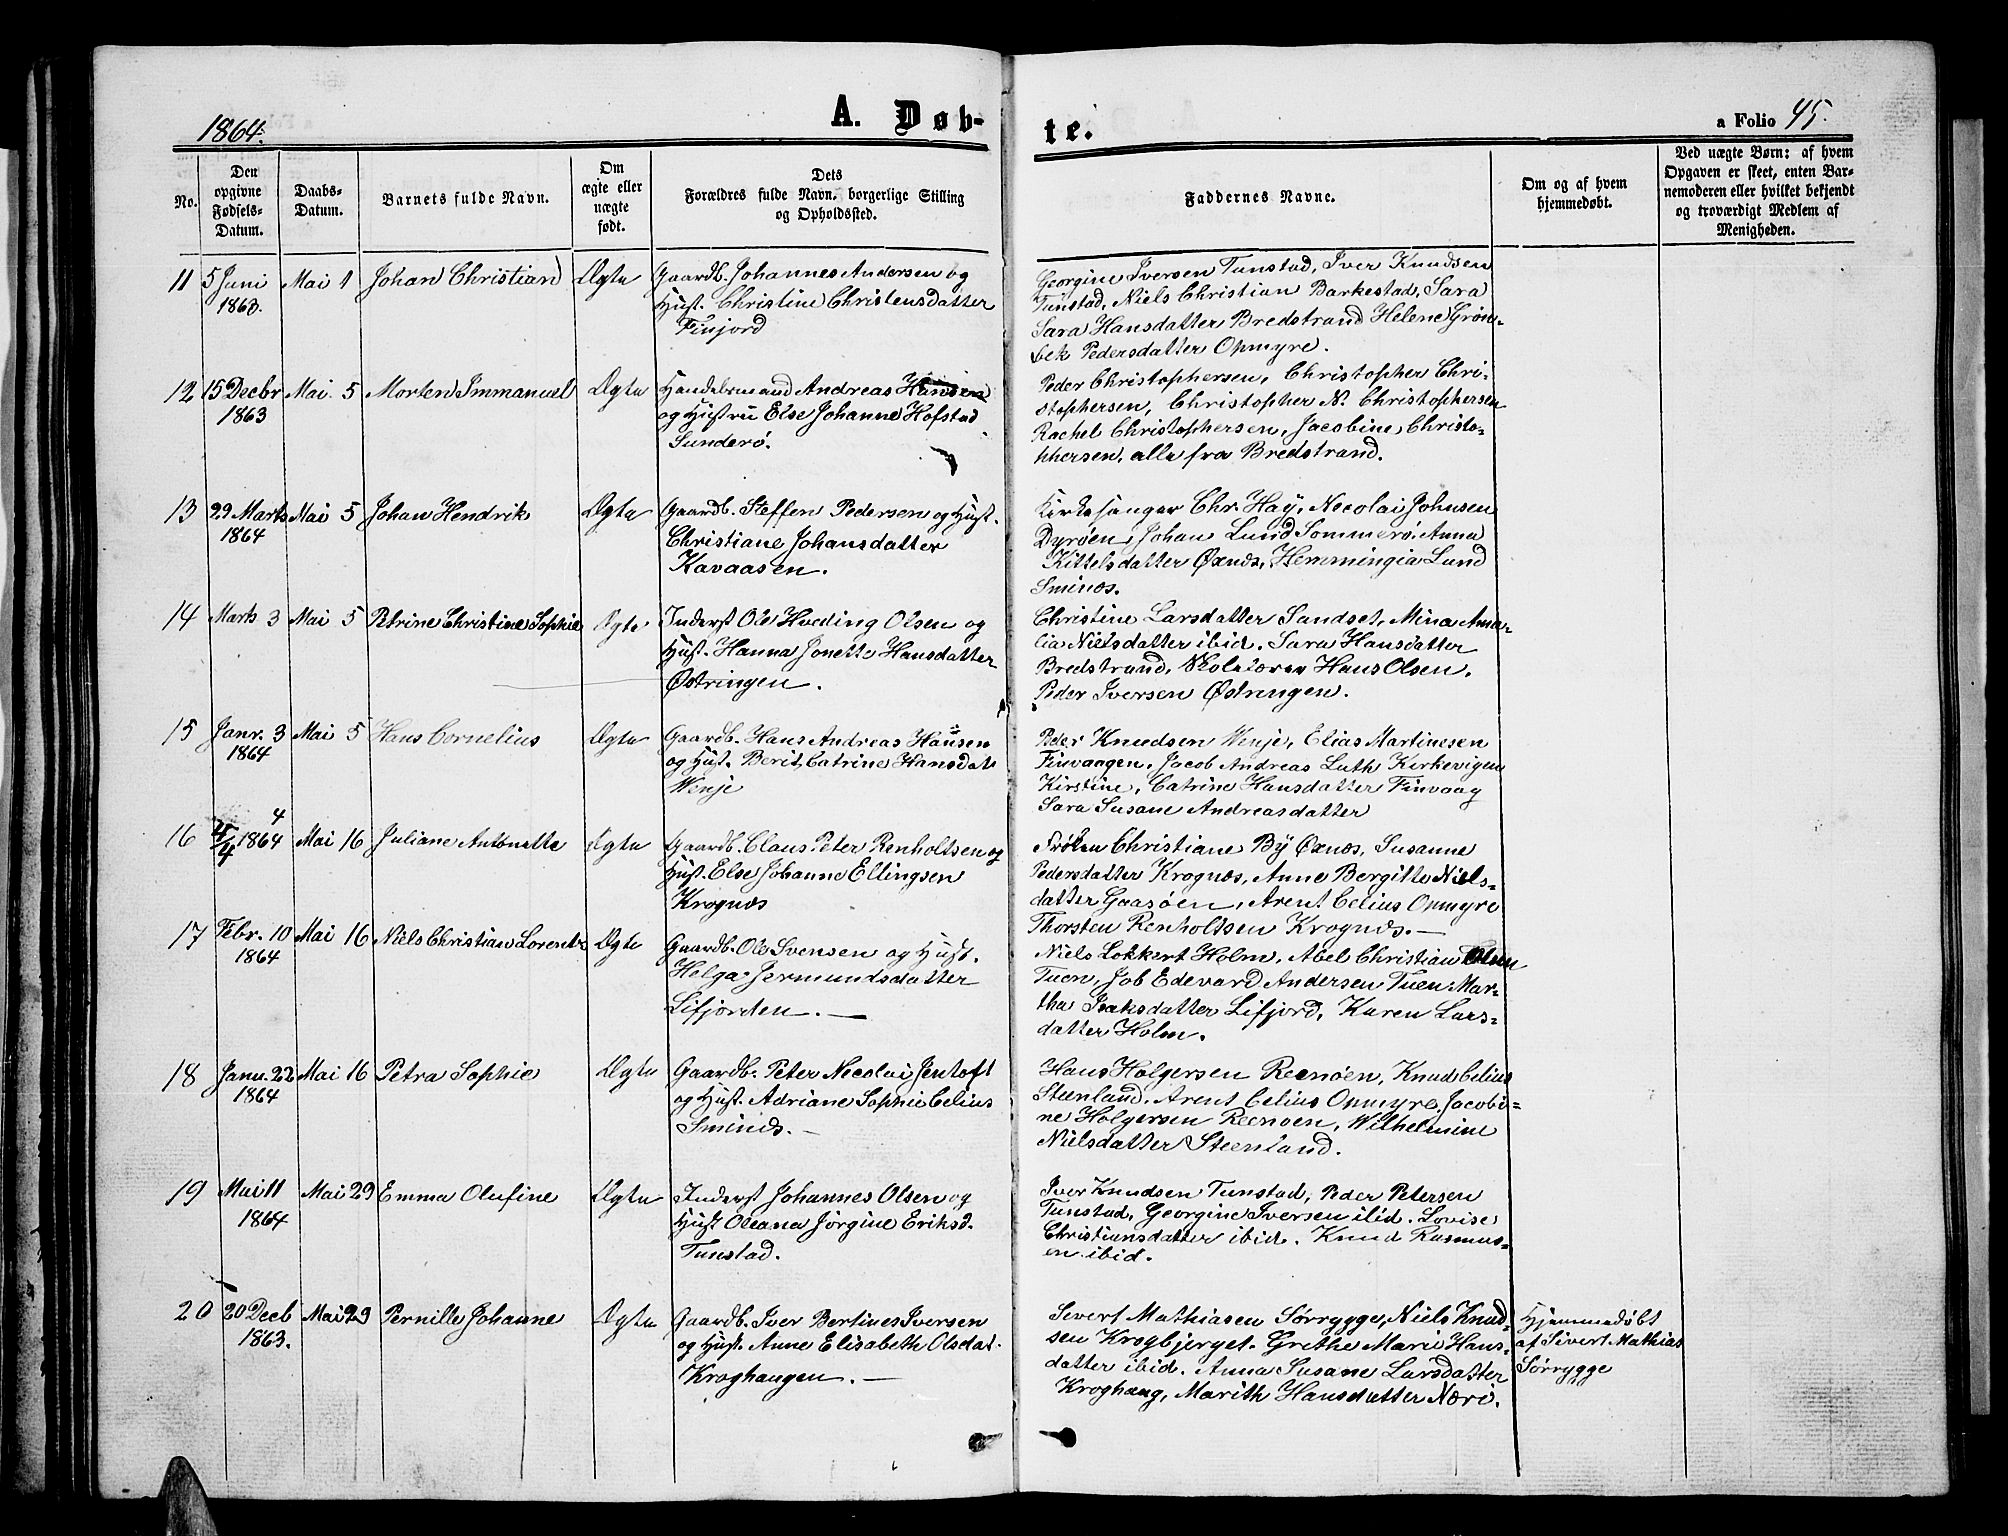 1864.
A. Døb-
te.
a Folio 45.
No.
Den
opgivne
Fødsels-
Datum.
Daabs-
Datum.
Barnets fulde Navn.
Om
ægte eller
uægte
født.
Dets
Forældres fulde Navn, borgerlige Stilling
og Opholdssted.
Faddernes Navne.
Om og af hvem
hjemmedøbt.
Ved uægte Børn: af hvem
Opgaven er skeet, enten Bar-
nemoderen eller hvilket bekjendt
og troværdigt Medlem af
Menigheden.
11 5 Juni Mai 1 Johan Christian Ægte Gaardb. Johannes Andersen og
1863. Hust. Christine Christensdatter
Finjord
Georgine Iversen Tunstad, Iver Knudsen
Tunstad, Niels Christian Barkestad, Sara
Sara Hansdatter Bredstrand Helene Grøn-
bek Pedersdatter Opmyre.
12 15 Decbr Mai 5 Morten Immanuel Ægte Handelsmand Andreas Hansen
1863 og Hustru Else Johanne Hofstad
Sunderø.
Peder Christophersen, Christopher Chri-
stophersen, Christopher N. Christophersen
Rachel Christophersen, Jacobine Christo-
phersen, alle fra Bredstrand.
13 29 Marts Mai 5 Johan Hendrik Ægte Gaardb. Steffen Pedersen og Hust.
1864 Christiane Johansdatter
Kavaasen.
Kirkesanger Chr. Hay, Necolai Johnsen
Dyrøen, Johan Lund Sommerø, Anna
Kittelsdatter Øxnæs, Hemmingia Lund
Sminæs.
14 Marts 3 Mai 5 Petrine Christine Sophie Ægte Inderst Ole Hveding Olsen og
Hust. Hanna Jonette Hansdatter
Østringen.
Christine Larsdatter Sandset, Mina Ama-
lia Nielsdatter ibid. Sara Hansdatter
Bredstrand, Skolelærer Hans Olsen.
Peder Iversen Østringen.
15 Janr. 3 Mai 5 Hans Cornelius Ægte Gaardb. Hans Andreas Hansen
1864 og Hust. Berit Catrine Hansdat
Wenje
Peder Knudsen Wenje, Elias Martinesen
Finvaagen, Jacob Andreas Luth Kirkevigen
Kirstine, Catrine Hansdatter Finvaag
Sara Susane Andreasdatter
4
16 4/4 1864 Mai 16 Juliane Antonette Ægte Gaardb. Claus Peter Renholtsen og
Hust. Else Johanne Ellingsen
Krognæs
Frøken Christiane By Øxnæs, Susanne
Pedersdatter Krognæs, Anne Bergitte Niels-
datter Gaasøen, Arent Celius Opmyre
Thorsten Renholtsen Krognæs.—
17 Febr. 10 Mai 16 Niels Christian Lorentz Ægte Gaardb. Ole Svensen og Hust.
1864 Helga Jermundsdatter
Lifjorden.—
Niels Lokkert Holm, Abel Christian Olsen
Tuen, Job Edevard Andersen Tuen, Mar-
tha Isaksdatter Lifjord, Karen Lars-
datter Holm.
18 Janu. 22 Mai 16 Petra Sophie Ægte Gaardb. Peter Necolai Jentoft
1864 og Hust. Adriane Sophie Celius
Sminæs.—
Hans Holgersen Reenøen, Knud Celius
Steenland, Arent Celius Opmyre, Jacobi-
ne Holgersen Reenøen, Wilhelmine
Nielsdatter Steenland.
19 Mai 11 Mai 29 Emma Olufine Ægte Inderst Johannes Olsen og
1864 Hust Oleana Jørgine Eriksd.
Tunstad.
Iver Knudsen Tunstad, Peder Petersen
Tunstad, Georgine Iversen ibid. Lovise
Christiansdatter ibid. Knud Rasmus-
en ibid.
20 20 Decb Mai 29 Pernille Johanne Ægte Gaardb. Iver Bertines Iversen
1863. og Hust. Anne Elisabeth Olsdat.
Kroghaugen.—
Severt Mathiasen Sørrygge, Niels Knud-
sen Krogbjerget. Grethe Marie Hans-
datter ibid. Anna Susane Larsdatter
Kroghaug, Marith Hansdatter Nærø.
Hjemmedøbt
af Sivert Mathias
Sørrygge